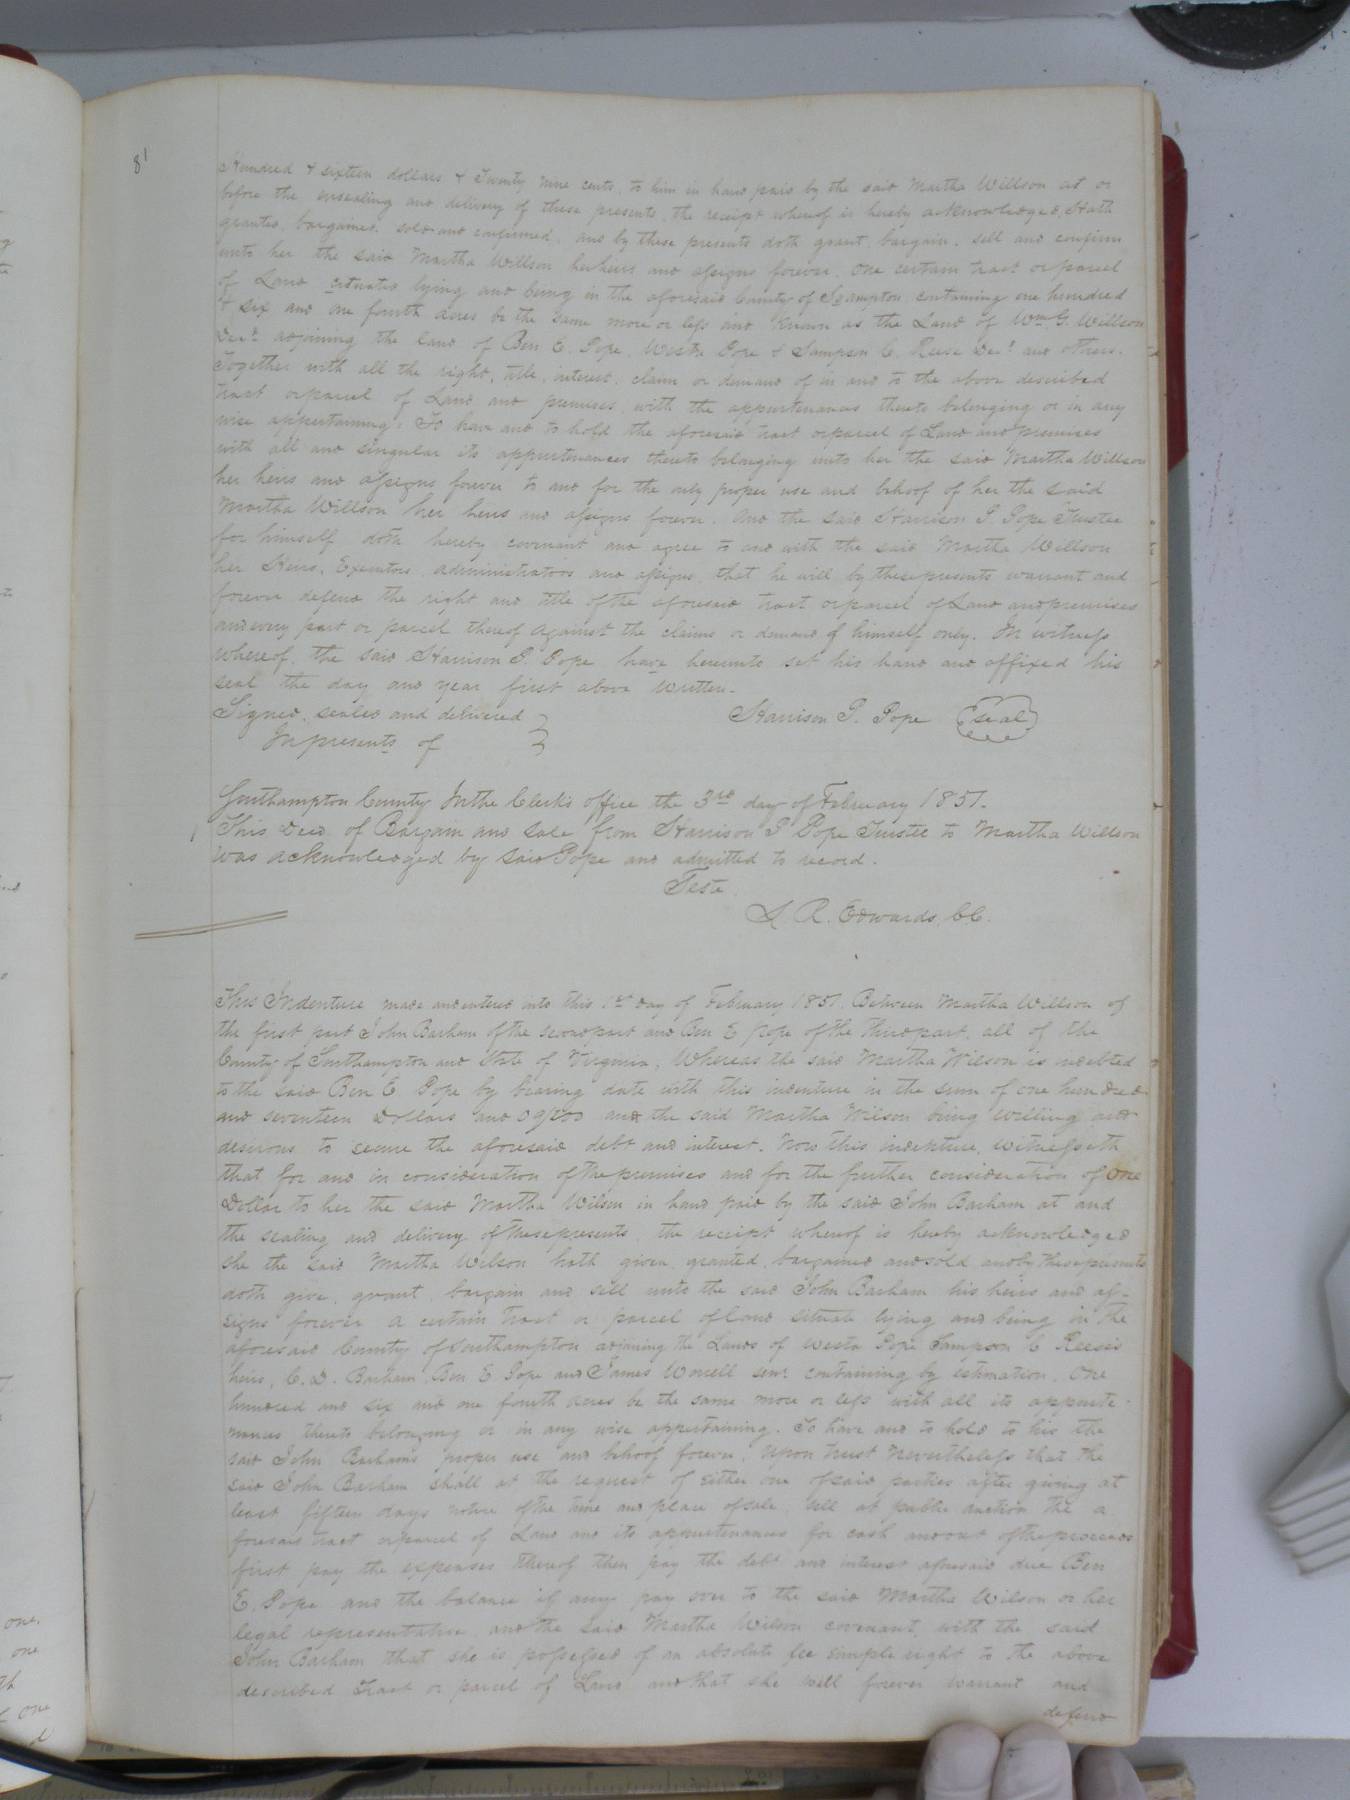 81
Hundred & sixteen dollars & Twenty nine cents, to him in hand paid by the said Martha Willson at or
before the ensealing and delivery of these presents, the receipt whereof is hereby acknowledged, Hath
granted, bargained, sold and confirmed, and by these presents doth grant, bargain, sell and confirm
unto her the said Martha Willson her heirs and assigns forever, One certain tract or parcel
of Land situated lying and being in the aforesaid County of Sampton, containing one hundred
& six and one fourth acres be the same more or less and known as the Land of Wm G. Willson
Decd. adjoining the land of Ben E. Pope, Westn Pope & Sampson C. Reese Decd. and others.
Together with all the right, title, interest, claim or demand of in and to the above described
tract or parcel of Land and premises, with the appurtenances thereto belonging or in any
wise appertaining. To have and to hold the aforesaid tract or parcel of Land and premises
with all and singular its appurtenances thereto belonging unto her the said Martha Willson
her heirs and assigns forever to and for the only proper use and behoof of her the said
Martha Willson her heirs and assigns forever. And the said Harrison P. Pope Trustee
for himself doth hereby covenant and agree to and with the said Martha Willson
her Heirs, Executors, administrators and assigns, that he will by these presents warrant and
forever defend the right and title of the aforesaid tract or parcel of Land and premises
and every part or parcel thereof against the claims or demand of himself only. In witness
whereof, the said Harrison P. Pope have hereunto set his hand and affixed his
seal the day and year first above written.
Signed, sealed and delivered } Harrison P. Pope (seal)
In presents of
Southampton County In the Clerk's office the 3rd day of February 1851.
This Deed of Bargain and sale from Harrison P Pope Trustee to Martha Willson
was acknowledged by said Pope and admitted to record.
Teste
L. R. Edwards, C.C.
This Indenture made and entered into this 1st day of February 1851. Between Martha Willson of
the first part John Barham of the second part and Ben E Pope of the third part, all of the
County of Southampton and State of Virginia, Whereas the said Martha Wilson is indebted
to the said Ben E Pope by bearing date with this indenture in the sum of one hundred
and seventeen Dollars and 09/100 and the said Martha Wilson being willing and
desirous to secure the aforesaid debt and interest. Now this indenture, witnesseth
that for and in consideration of the premises and for the further consideration of One
Dollar to her the said Martha Wilson in hand paid by the said John Barham at and
the sealing and delivery of these presents, the receipt whereof is hereby acknowledged
she the said Martha Wilson hath given, granted, bargained and sold and by these presents
doth give, grant, bargain and sell unto the said John Barham his heirs and as-
signs forever a certain tract or parcel of land situate lying and being in the
aforesaid County of Southampton adjoining the Lands of Westn Pope Sampson C Reese's
heirs, C. D. Barham, Ben E Pope and James Worrell senr containing by estimation, One
hundred and six and one fourth acres be the same more or less with all its appurte-
nances thereto belonging or in any wise appertaining. To have and to hold to his the
said John Barham's proper use and behoof forever, Upon trust nevertheless that the
said John Barham shall at the request of either one of said parties after giving at
least fifteen days notice of the time and place of sale, sell at public auction the a
foresaid tract or parcel of Land and its appurtenances for cash and out of the proceeds
first pay the expenses thereof then pay the debt and interest aforesaid due Ben
E. Pope and the balance if any pay over to the said Martha Wilson or her
legal representative, and the said Martha Wilson covenant, with the said
John Barham that she is possessed of an absolute fee simple right to the above
described Tract or parcel of Land and that she will forever warrant and
defend